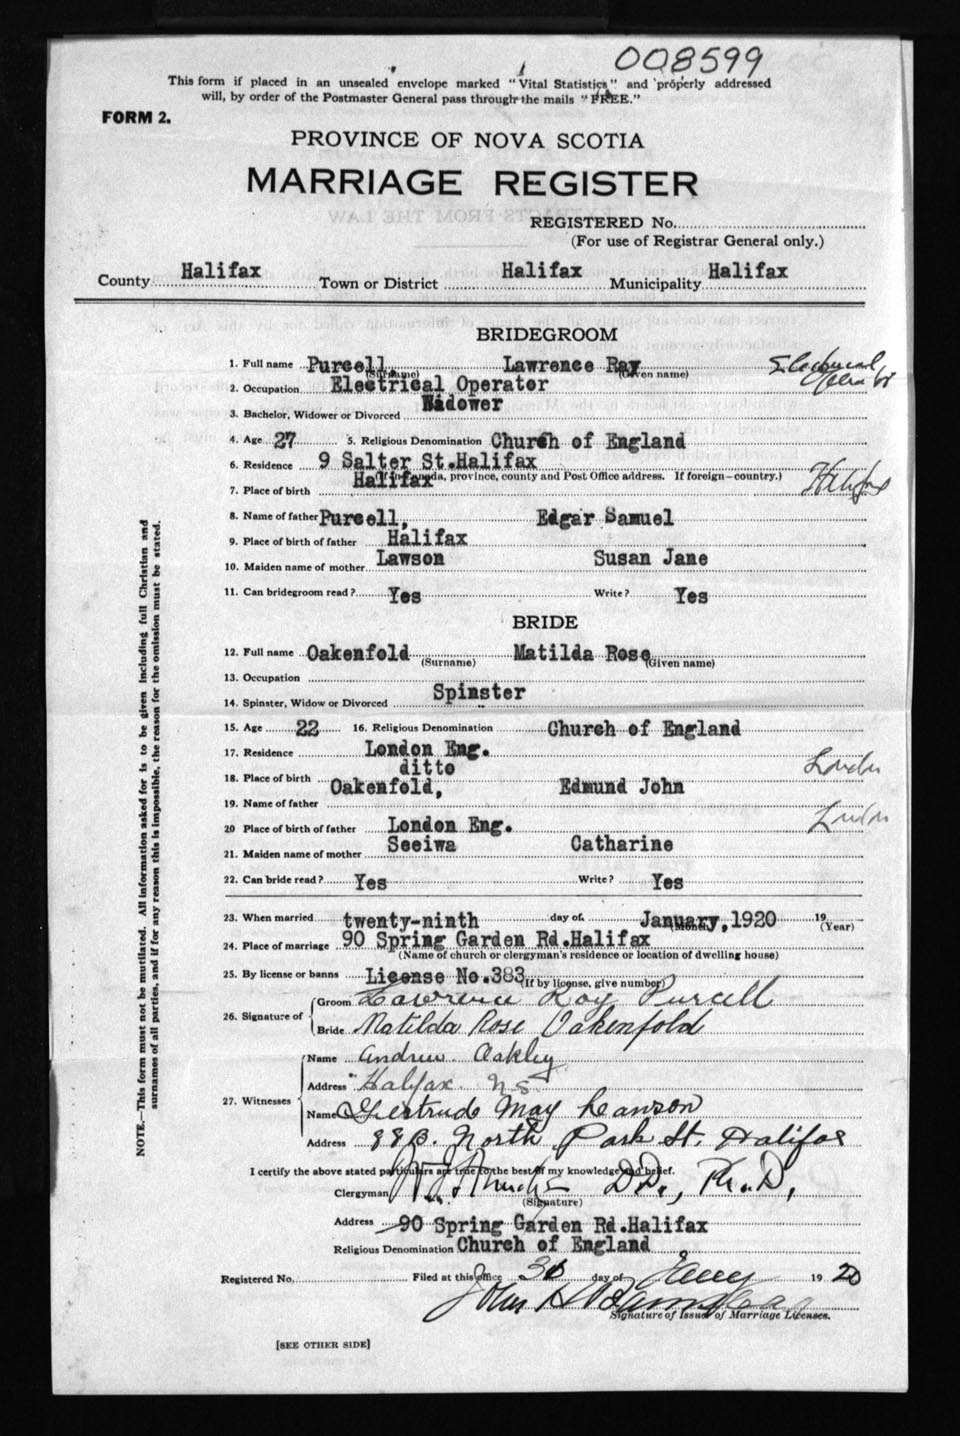 008599
This form if placed in an unsealed envelope marked "Vital Statistics" and properly addressed
will, by order of the Postmaster General pass through the mails "FREE."
FORM 2.
PROVINCE OF NOVA SCOTIA
MARRIAGE REGISTER
REGISTERED No.
(For use of Registrar General only.)
County Halifax Town or District Halifax Municipality Halifax
BRIDEGROOM
1. Full name Purcell, (Surname) Lawrence Ray (Given name)
2. Occupation Electrical Operator
3. Bachelor, Widower or Divorced Widower
4. Age 27 5. Religious Denomination Church of England
6. Residence 9 Salter St. Halifax
(If in Canada, province, county and Post Office address. If foreign—country.)
7. Place of birth Halifax Halifax
8. Name of father Purcell, Edgar Samuel
9. Place of birth of father Halifax
10. Maiden name of mother Lawson Susan Jane
11. Can bridegroom read? Yes Write? Yes
BRIDE
12. Full name Oakenfold (Surname) Matilda Rose (Given name)
13. Occupation
14. Spinster, Widow or Divorced Spinster
15. Age 22 16. Religious Denomination Church of England
17. Residence London Eng.
18. Place of birth ditto London
19. Name of father Oakenfold, Edmund John
20 Place of birth of father London Eng. London
21. Maiden name of mother Seeiwa Catharine
22. Can bride read? Yes Write? Yes
23. When married twenty-ninth day of January, 1920 (Month) 19 (Year)
24. Place of marriage 90 Spring Garden Rd. Halifax
(Name of church or clergyman's residence or location of dwelling house)
25. By license or banns License No. 383 (If by license, give number)
26. Signature of Groom Lawrence Ray Purcell
Bride Matilda Rose Oakenfold
27. Witnesses Name Andrew Oakley
Address Halifax N S
Name Gertrude May Lawson
Address North Park St. Halifax
I certify the above stated particulars are true to the best of my knowledge and belief.
Clergyman D.D., Ph.D.
(Signature)
Address 90 Spring Garden Rd. Halifax
Religious Denomination Church of England
Registered No. Filed at this office 30 day of Jany 19 20
John H
Signature of Issuer of Marriage Licenses.
[SEE OTHER SIDE]
NOTE.—This form must not be mutilated. All information asked for is to be given including full Christian and
surnames of all parties, and if for any reason this is impossible, the reason for the omission must be stated.